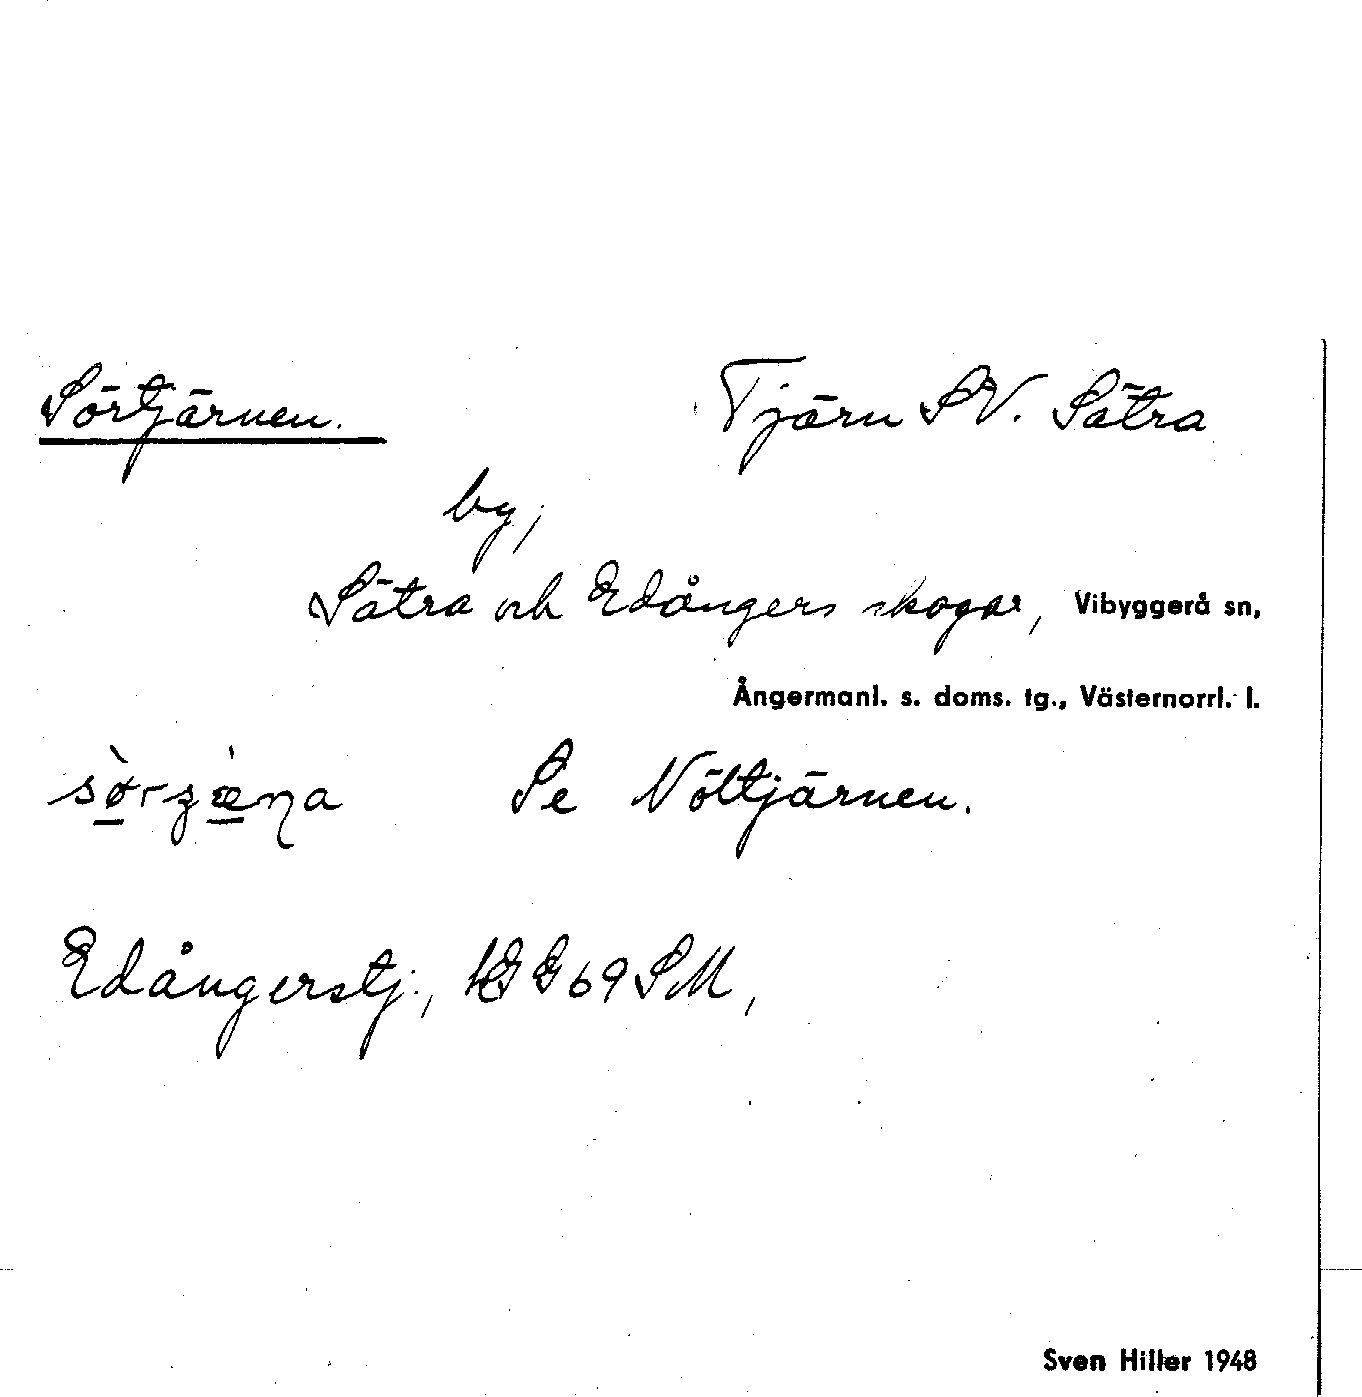 Sörtjärnen. Tjärn SV. Sätra
by,
Sätra och Edångers skogar, Vibyggerå sn,
Ångermanl. s. doms. tg., Västernorrl. l.
Se Nöltjärnen.
Edångerstj., 69 SM,
Sven Hiller 1948